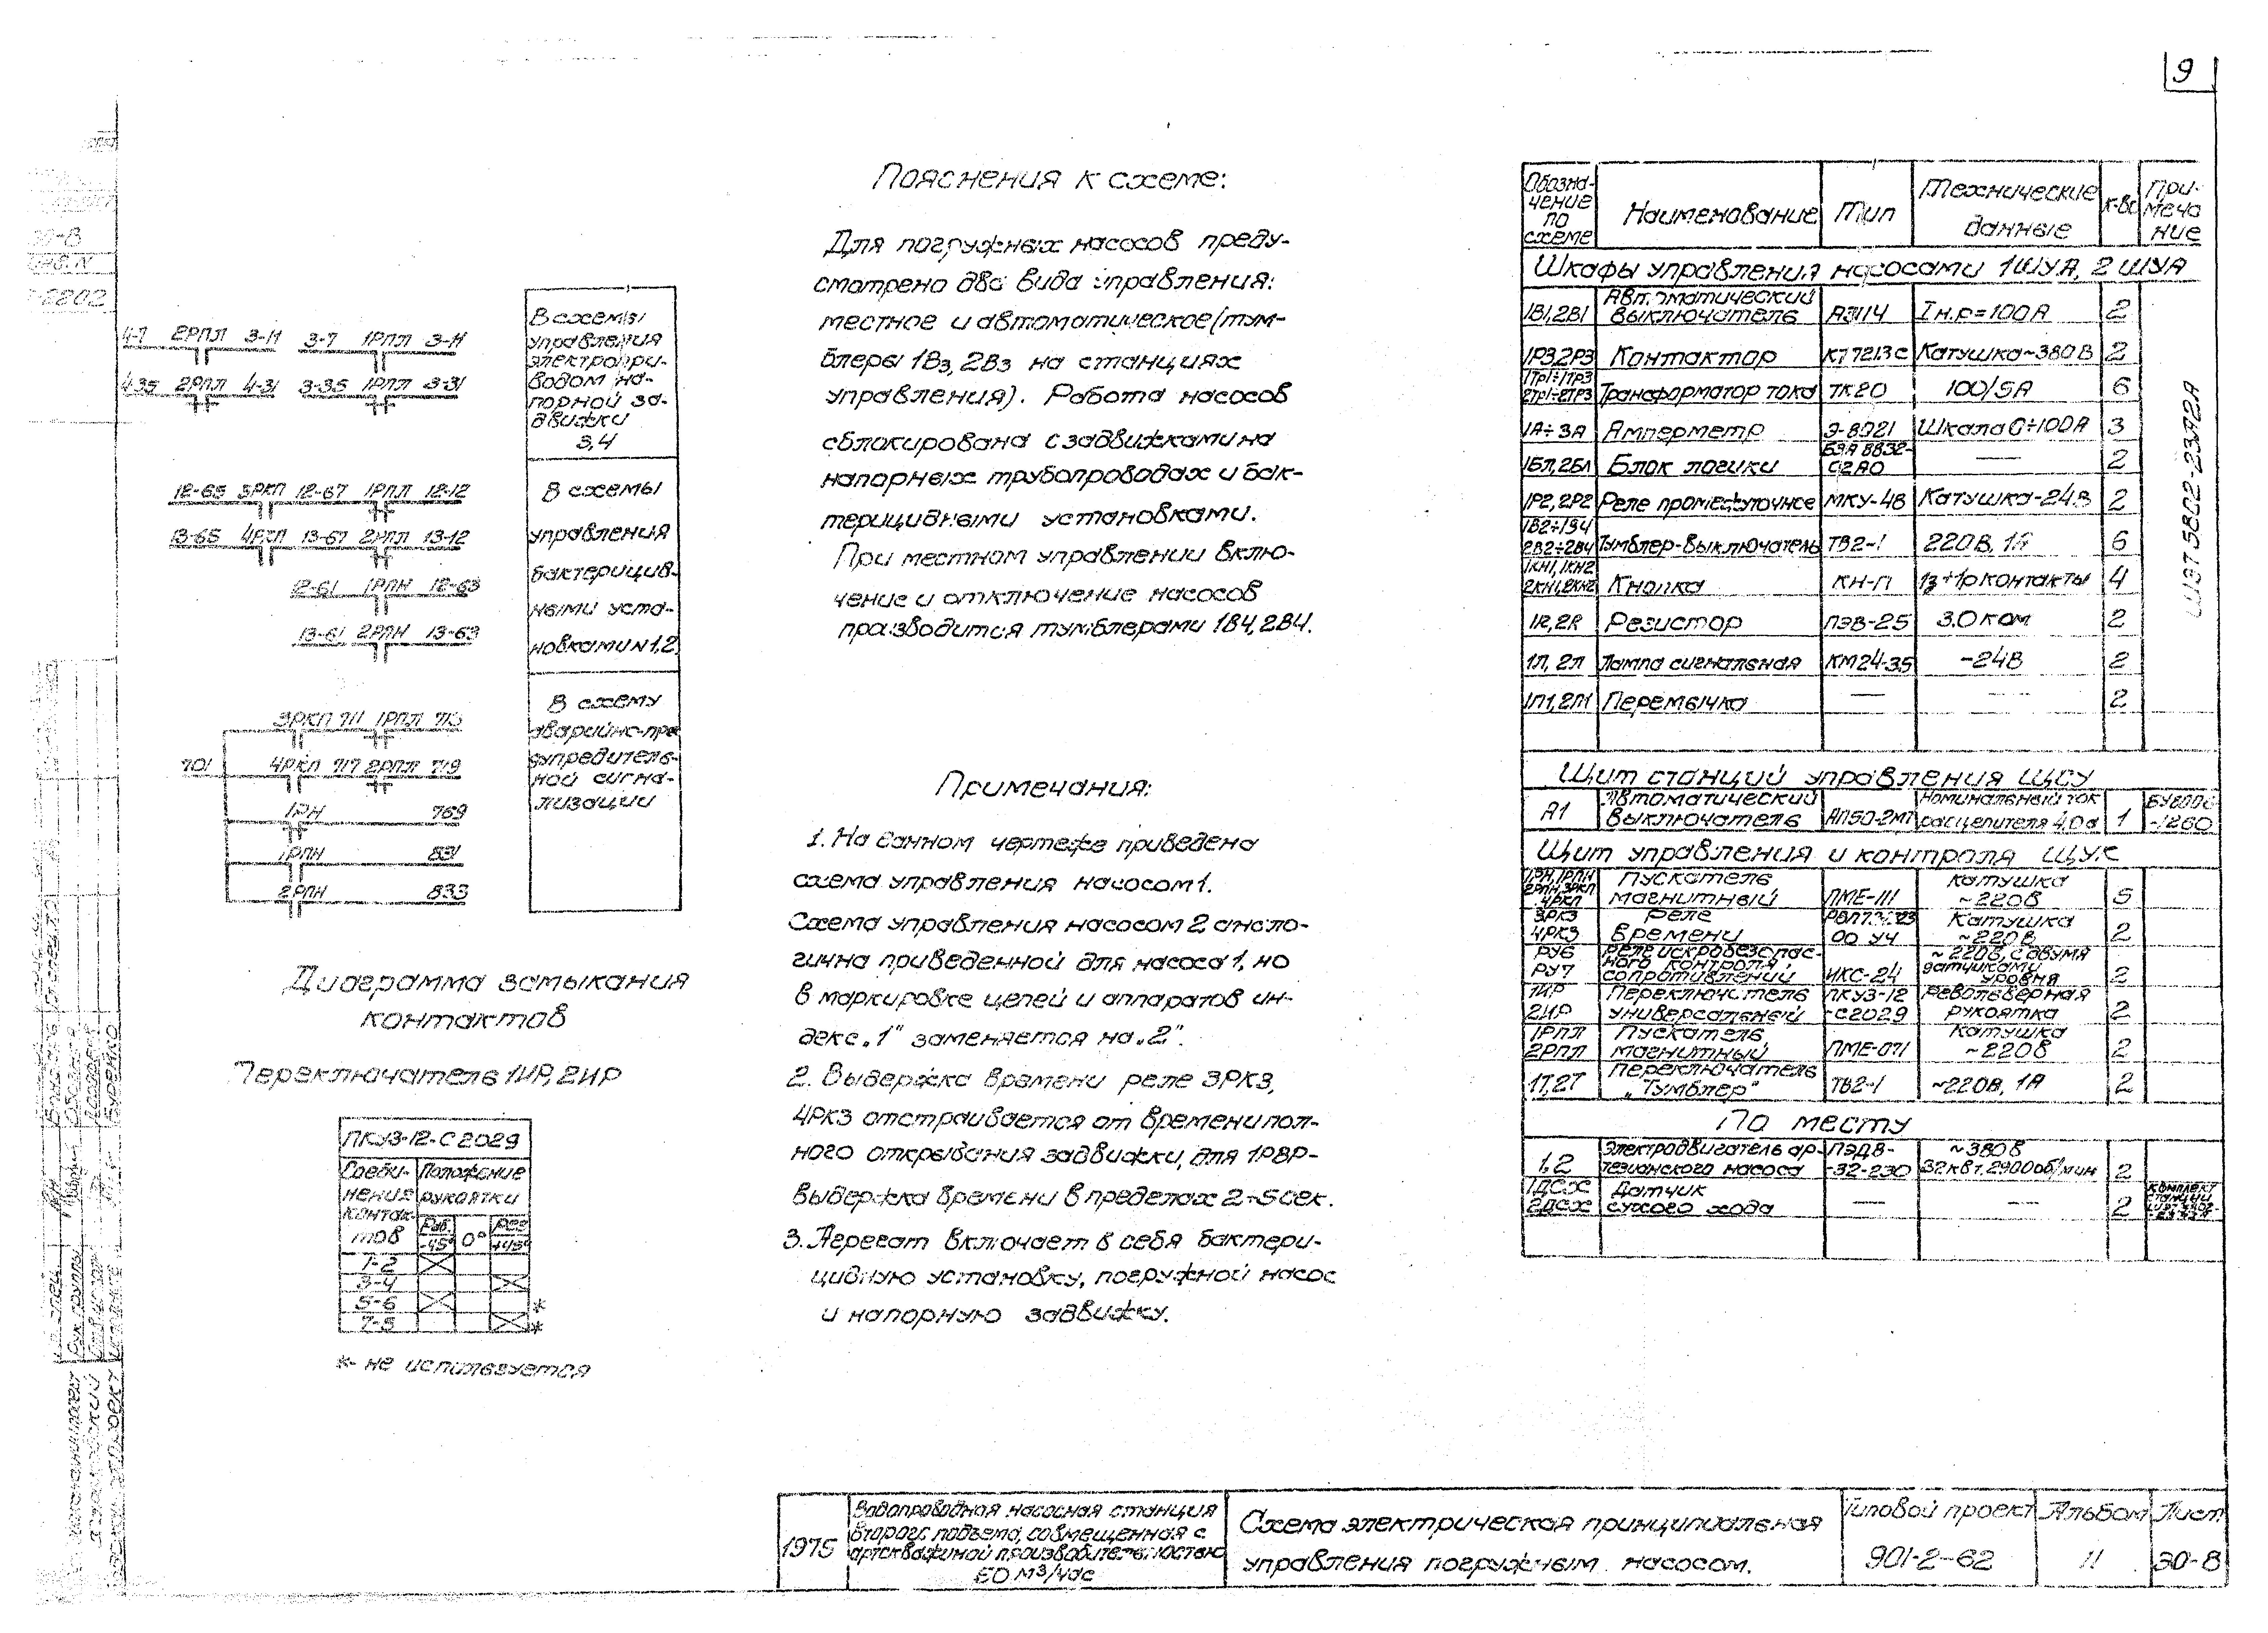 9
Пояснения к схеме:
Для погружных насосов преду-
смотрено два вида управления:
местное и автоматическое (тум-
блеры 1В3, 2В3 на станциях
управления). Работа насосов
сблокирована с задвижками на
напорных трубопроводах и бак-
терицидными установками.
При местном управлении вклю-
чение и отключение насосов
производится тумблерами 1В4, 2В4.
Примечания:
1. На данном чертеже приведена
схема управления насосом 1.
Схема управления насосом 2 анало-
гична приведенной для насоса 1, но
в маркировке цепей и аппаратов ин-
декс „1" заменяется на „2".
2. Выдержка времени реле 3РКЗ,
4РКЗ отстраивается от времени пол-
ного открывания задвижки, для 1РВР-
выдержка времени в пределах 2÷5 сек.
3. Агрегат включает в себя бактери-
цидную установку, погружной насос
и напорную задвижку.
4-7 2РПЛ 3-11 3-7 1РПЛ 3-11
4-35 2РПЛ 4-31 3-35 1РПЛ 3-31
В схемы
управления
электропри-
водом на-
порной за-
движки
3,4
12-65 3РКП 12-67 1РПЛ 12-12
13-65 4РКП 13-67 2РПЛ 13-12
12-61 1РПН 12-63
13-61 2РПН 13-63
В схемы
управления
бактерицид-
ными уста-
новками N 1,2
701
3РКП 711 1РПЛ 713
4РКП 717 2РПЛ 719
1РН 769
1РПН 831
2РПН 833
В схему
аварийно-пре
дупредитель-
ной сигна-
лизации
Диаграмма замыкания
контактов
Переключатель 1ИР, 2ИР
ПКУ3-12-С2029
Соеди-
нения
контак-
тов
Положение
рукоятки
Раб. -45° 0° Рез +45°
1-2
3-4
5-6 *
7-8 *
*- не используется
Обозна-
чение
по
схеме
Наименование
Тип
Технические
данные
К-во
При-
меча
ние
Шкафы управления насосами 1ШУА, 2ШУА
1В1, 2В1 Автоматический выключатель А3114 Iн.р=100А 2
1РЗ, 2РЗ Контактор КТ7213С Катушка ~380В 2
1Тр1÷1ТР3 2Тр1÷2ТР3 Трансформатор тока ТК20 100/5А 6
1А÷3А Амперметр Э-8021 Шкала 0÷100А 3
1БЛ, 2БЛ Блок логики 2
1Р2, 2Р2 Реле промежуточное МКУ-48 Катушка-24В 2
1В2÷1В4 2В2÷2В4 Тумблер-выключатель ТВ2-1 220В, 1А 6
1КН1, 1КН2 2КН1, 2КН2 Кнопка КН-П 1з+1р контакты 4
1R, 2R Резистор ПЭВ-25 3.0 ком 2
1Л, 2Л Лампа сигнальная КМ24-35 -24В 2
1П1, 2П1 Перемычка 2
Щит станций управления ЩСУ
А1 Автоматический выключатель АП50-2МТ Номинальный ток расцепителя 4,0а 1
Щит управления и контроля ЩУК
1РН, 1РПН 2РПН, 3РКП 4РКП Пускатель магнитный ПМЕ-111 катушка ~220В 5
3РКЗ 4РКЗ Реле времени Катушка ~220В 2
РУ6 РУ7 Реле искробезопас- ного контроля сопротивлений ИКС-2Н ~220В, с двумя датчиками уровня 2
1ИР 2ИР Переключатель универсальный ПКУ3-12 -С2029 револьверная рукоятка 2
1РПЛ 2РПЛ Пускатель магнитный ПМЕ-071 Катушка ~220В 2
1Т, 2Т Переключатель „Тумблер" ТВ2-1 ~220В, 1А 2
По месту
1,2 Электродвигатель ар- тезианского насоса ПЭДВ- -32-230 ~380В 32 квт. 2900 об/мин 2
1ДСХ 2ДСХ Датчик сухого хода 2
1975
Водопроводная насосная станция
второго подъема, совмещенная с
артскважиной производительностью
60 м³/час
Схема электрическая принципиальная
управления погружным насосом.
Типовой проект
901-2-62
Альбом
II
Лист
ЭО-8